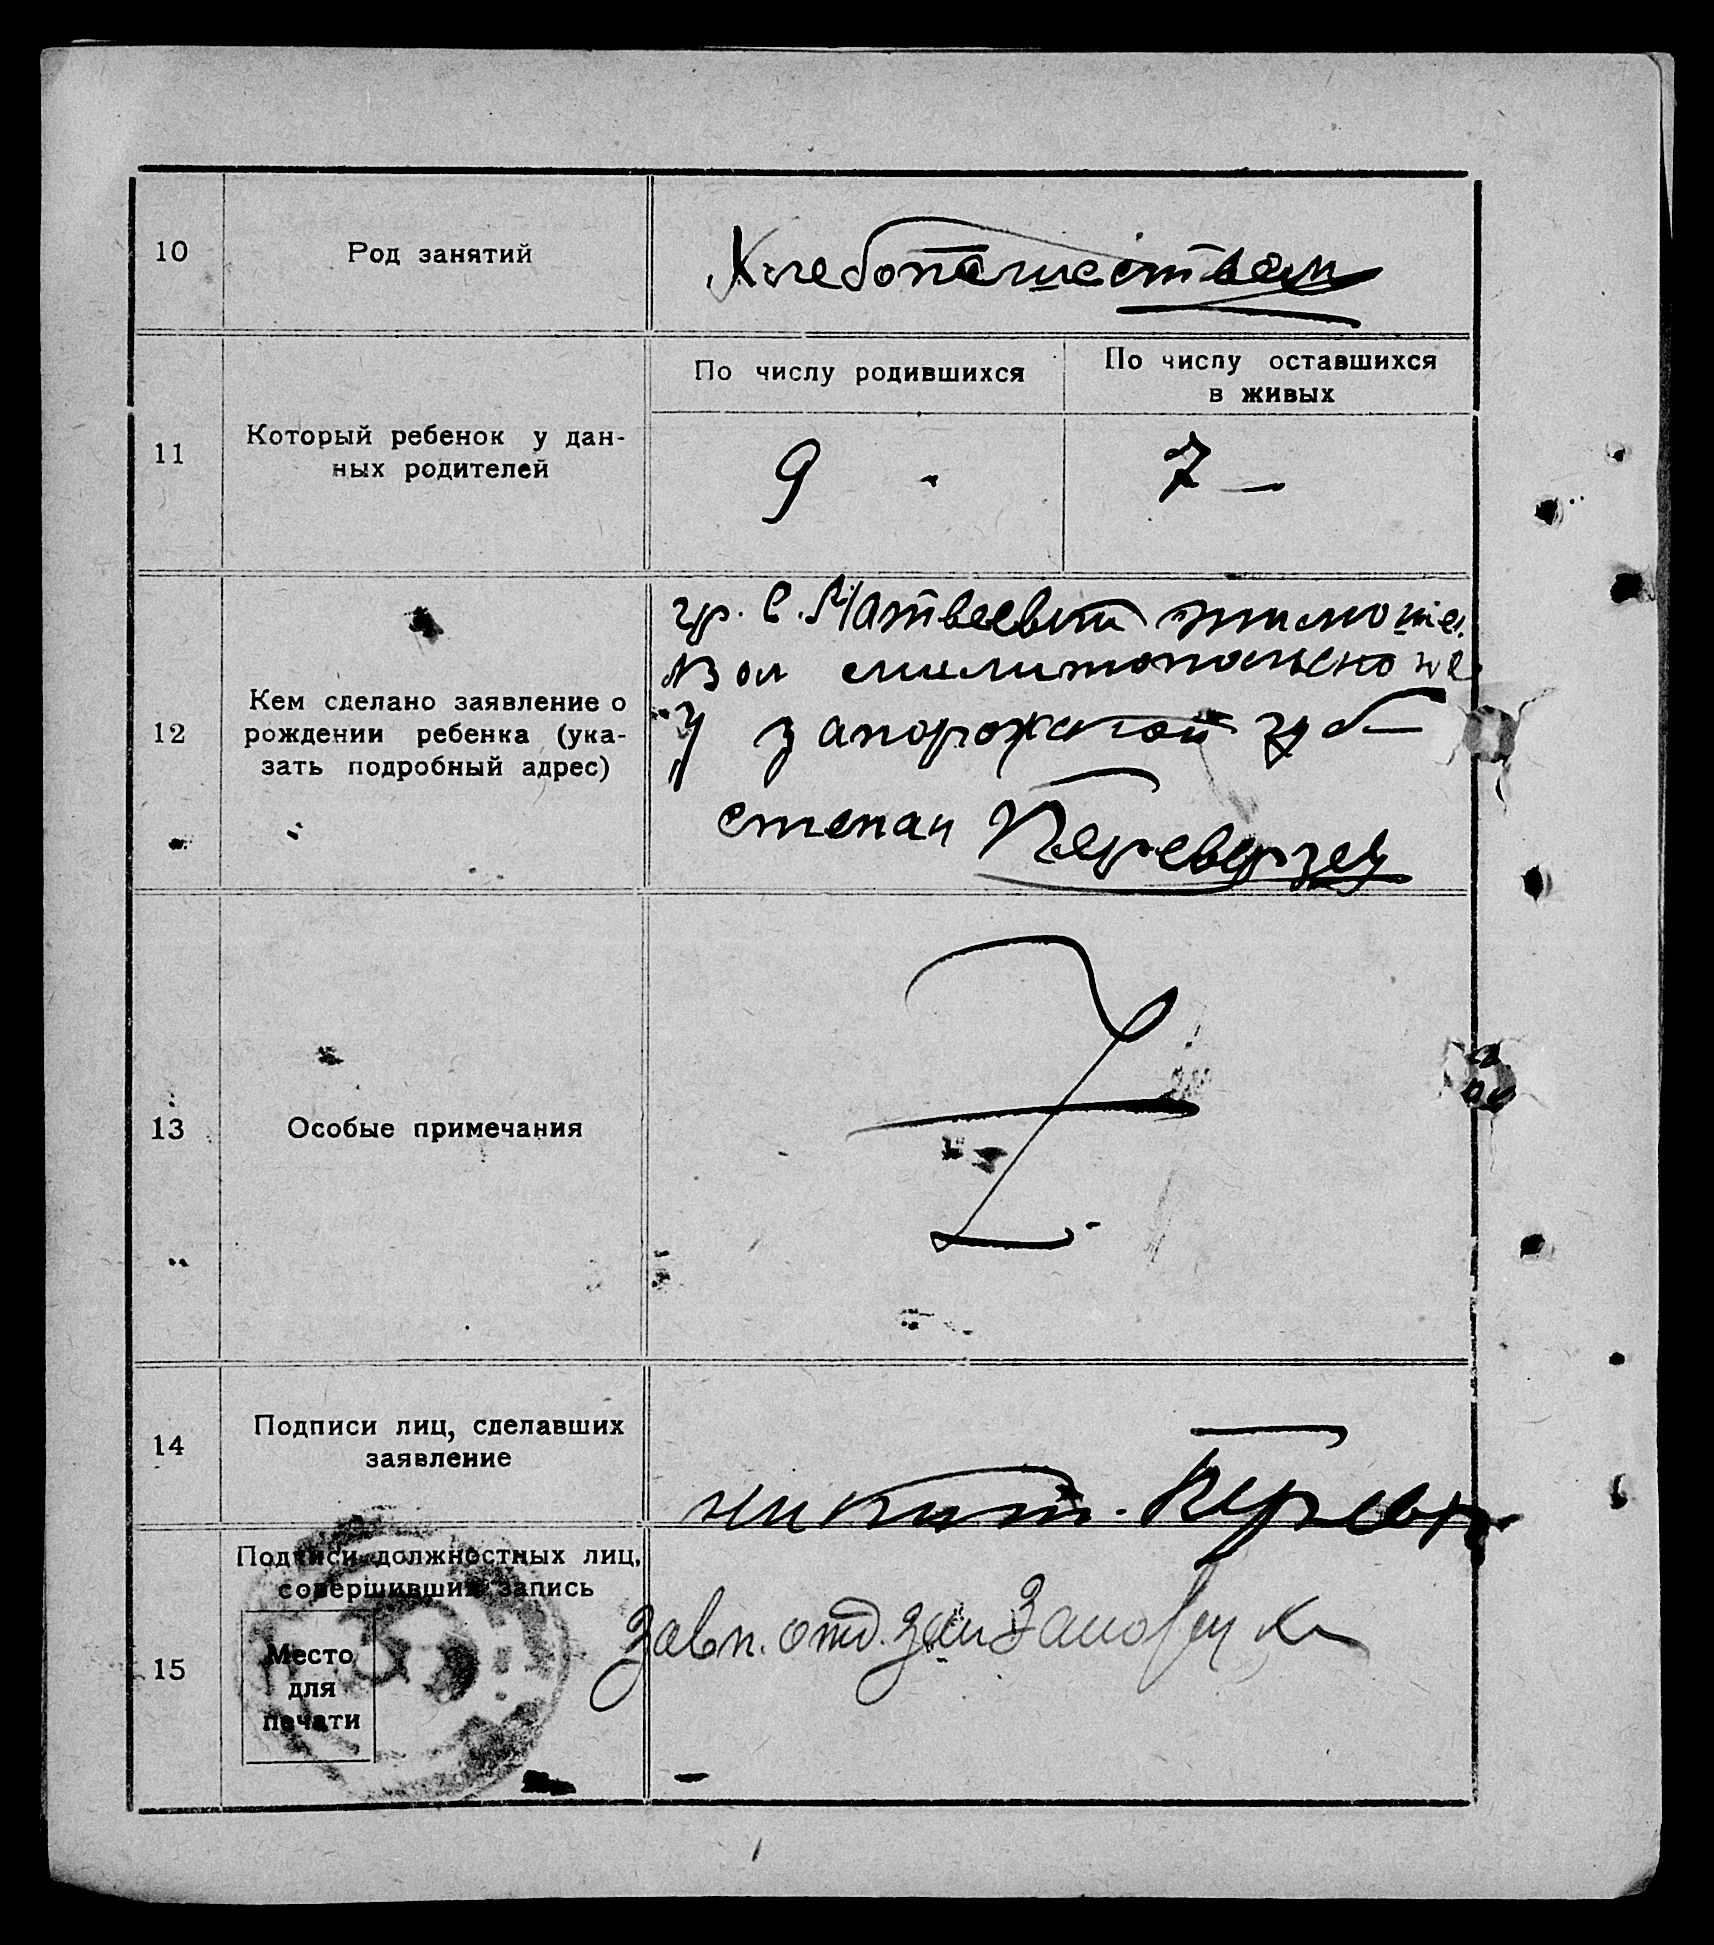 10
Род занятий
Хлебопашеством
По числу родившихся
По числу оставшихся
в живых
11
Который ребенок у дан-
ных родителей
9
7 —
12
Кем сделано заявление о
рождении ребенка (ука-
зать подробный адрес)
гр. С. Матвеевки
Вол
У запорожской губ
степан Переверзев
13
Особые примечания
Z
14
Подписи лиц, сделавших
заявление
15
Подписи должностных лиц,
совершивших запись
Место
для
печати
Завп. отд.